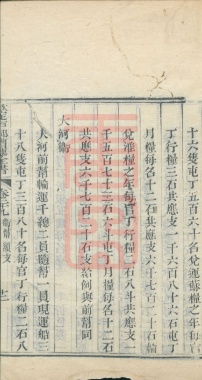 十六隻屯丁五百六十名兌運蘇之年每官
丁行糧三石共應支一千六百八十六石屯丁
月糧每名十二石共應支六千七百二十石輪
兌淮糧之年每官丁行糧二石八斗共應支一
千五百七十三石六斗屯丁月糧每名十二石
共應支六千七百二十石支給例與前幫同
大河衛
大河前幫輪運千總二員隨幫一員現運船三
十八隻屯丁三百八十名每官丁行糧二石八
欽定戶部漕運全書 卷二十九 衛幫額支 十二